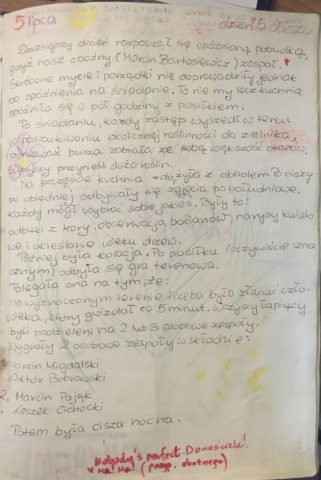 5 lipca dzień 5 obozu
Dzisiejszy dzień rozpoczął się opóźnioną pobudką,
gdyż nasz oboźny (Marcin Bartosiewicz) zaspał.*
Skrócone mycie i porządki nie doprowadziły jednak
do spóźnienia na śniadanie. To nie my lecz kuchnia
spóźniła się o pół godziny z posiłkiem.
Po śniadaniu, każdy zastęp wyszedł w teren
w poszukiwaniu okolicznej roślinności do zielnika,
ponieważ burza zabrała ze sobą większość okazów.
przynieśli dużo roślin.
Na szczęście kuchnia zdążyła z obiadem. Po ciszy
po obiedniej odbywały się zajęcia po południowe.
Każdy mógł wybrać sobie jakieś. Były to:
odbitki z kory, obserwacja bocianów, narysy kwiato
we i określanie wieku drzew.
Później była kolacja. Po posiłku (oczywiście sma
cznym) odbyła się gra terenowa.
Polegała ona na tym, że:
na wyznaczonym terenie trzeba było złapać czło-
wieka, który gwizdał co 5 minut. Wszyscy łapiący
byli podzieleni na 2 lub 3 osobowe zespoły.
Wygrały 2 osobowe zespoły w składzie:
1. Marcin Migdalski
Wiktor Bobrowski
2. Marcin Pająk
Leszek Cichocki
Potem była cisza nocna.
Nobody's perfect. Donosiciele!
* ha! Ha! (przyp. oboźnego)